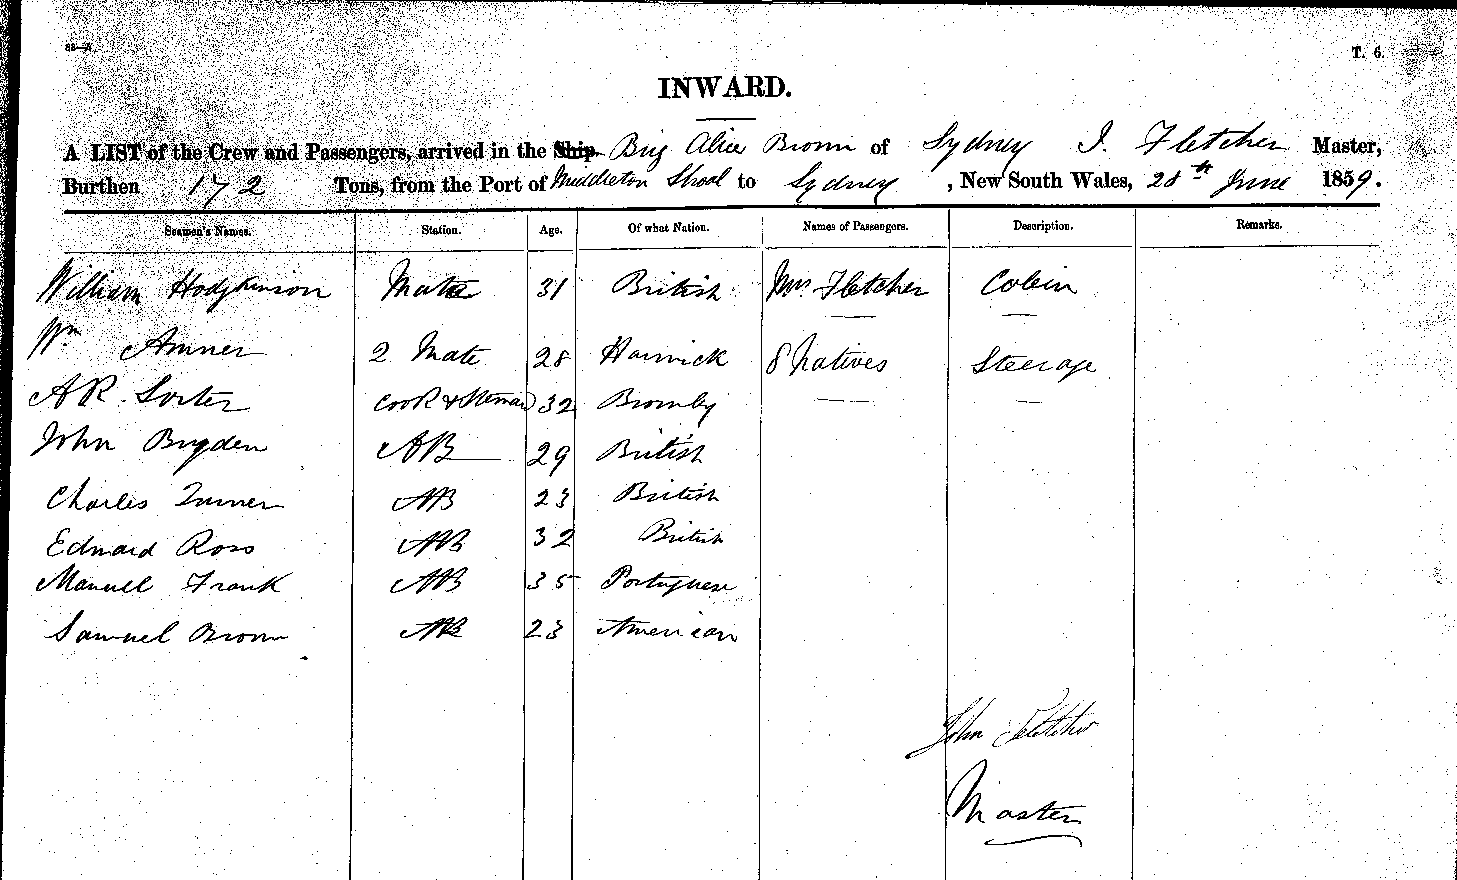 T. 6.
INWARD.
A LIST of the Crew and Passengers, arrived in the Ship Brig Alice Brown of Sydney J. Fletcher Master,
Burthen 172 Tons, from the Port of Middleton Shoal to Sydney, New South Wales, 28th June 1859.
Seamen's Names. Station. Age. Of what Nation. Names of Passengers. Description. Remarks.
William Hodgkinson Mate 31 British Mrs. Fletcher Cabin
Wm Amner 2 Mate 28 Harwick 8 Natives Steerage
A R Sorter Cook & Steward 32 Bromby
John Bugden AB 29 British
Charles Turner AB 23 British
Edward Ross AB 32 British
Manuell Frank AB 35 Portuguese
Samuel Brown AB 23 American
John Fletcher
Master